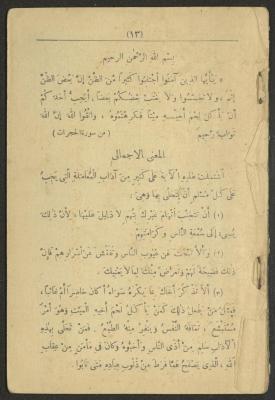 (١٣)
بِسْمِ اللهِ الرَّحْمنِ الرَّحِيمِ
« يَا أَيُّهَا الَّذِينَ آمَنُوا اجْتَنِبُوا كَثِيرًا مِنَ الظَّنِّ إِنَّ بَعْضَ الظَّنِّ
إِثْمٌ، وَلَا تَجَسَّسُوا وَلَا يَغْتَبْ بَعْضُكُمْ بَعْضًا، أَيُحِبُّ أَحَدُكُمْ
أَنْ يَأْكُلَ لَحْمَ أَخِيهِ مَيْتًا فَكَرِهْتُمُوهُ، وَاتَّقُوا اللهَ إِنَّ اللهَ
تَوَّابٌ رَحِيمٌ (من سورة الحجرات)
المعنى الاجمالى
اشْتَمَلَتْ هذِهِ الْآيَةُ عَلَى كَثِيرٍ مِنْ آدَابِ الْمُعَامَلَةِ الَّتِى يَجِبُ
عَلَى كُلِّ مُسْلِمٍ أَنْ يَتَحَلَّى بِهَا وَهِىَ :
(١) أَنْ تَجْتَنِبَ اتِّهَامَ غَيْرِكَ بِتُهَمٍ لَا دَلِيلَ عَلَيْهَا، لِأَنَّ ذلِكَ
يُسِىءُ إِلَى سُمْعَةِ النَّاسِ وَكَرَامَتِهِمْ
(٢) وَأَلَّا تَبْحَثَ عَنْ عُيُوبِ النَّاسِ وَتُفَتِّشَ عَنْ أَسْرَارِهِمْ فَإِنَّ
ذلِكَ فَضِيحَةٌ لَهُمْ وَتَعَرُّضٌ مِنْكَ لِمَا لَا يَعْنِيكَ .
(٣) أَلَّا تَذْكُرَ أَخَاكَ بِمَا يَكْرَهُهُ سَوَاءٌ أَكَانَ حَاضِرًا أَمْ غَائِبًا،
فَمَثَلُ مَنْ يَفْعَلُ ذلِكَ كَمَنْ يَأْكُلُ لَحْمَ أَخِيهِ الْمَيِّتِ وَهُوَ أَمْرٌ
مُسْتَقْبَحٌ، تَعَافُهُ النَّفْسُ وَيَنْفِرُ مِنْهُ الطَّبْعُ. فَمَنْ تَحَلَّى بِهذِهِ
الْآدَابِ سَلِمَ مِنْ أَذَى النَّاسِ وَأَحَبُّوهُ وَكَانَ فِى مَأْمَنٍ مِنْ عِقَابِ
اللهِ، الَّذِى يَصْفَحُ عَمَّا فَرَطَ مِنْ ذُنُوبِ عِبَادِهِ مَتَى تَابُوا .